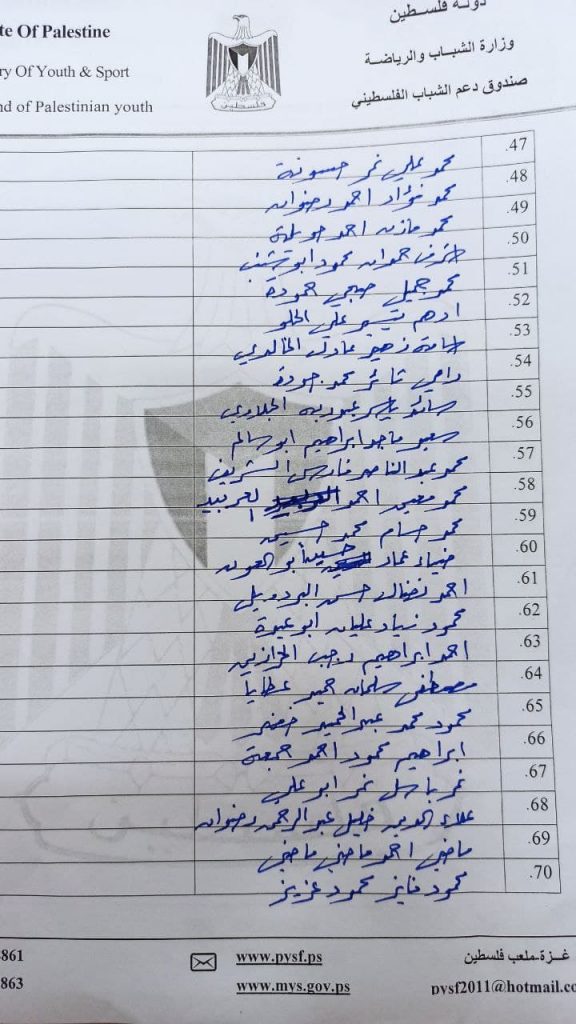 te Of Palestine
دولة فلسطين
ry Of Youth & Sport
وزارة الشباب والرياضة
nd of Palestinian youth
صندوق دعم الشباب الفلسطيني
فلسطين
47. محمد علي نمر حسونة
48. محمد فؤاد احمد رضوان
49. محمد مازن احمد
50. محمود ابو
51. محمد جميل صبحي حمودة
52. ادهم تيسير علي الحلو
53. اسامة زهير عادل الخالدي
54. رامي ثائر محمد جودة
55. ياسر عبد ربه
56. ماجد ابراهيم ابو سالم
57. محمد عبد الناصر فارس الشريف
58. محمد معين احمد
59. محمد حسام محمد حسين
60. ضياء عماد حسين أبو العون
61. احمد نضال حسن البردويل
62. محمود زياد عليان ابو عبدة
63. احمد ابراهيم رجب
64. مصطفى سلمان حميد عطايا
65. محمود محمد عبد الحميد خضر
66. ابراهيم محمود احمد جمعة
67. نمر باسل نمر ابو علي
68. علاء الدين خليل عبد الرحمن رضوان
69. ماضي احمد ماضي ماضي
70. محمود فايز محمود عزيز
4861
www.pysf.ps
غزة-ملعب فلسطين
863
www.mys.gov.ps
pysf2011@hotmail.co